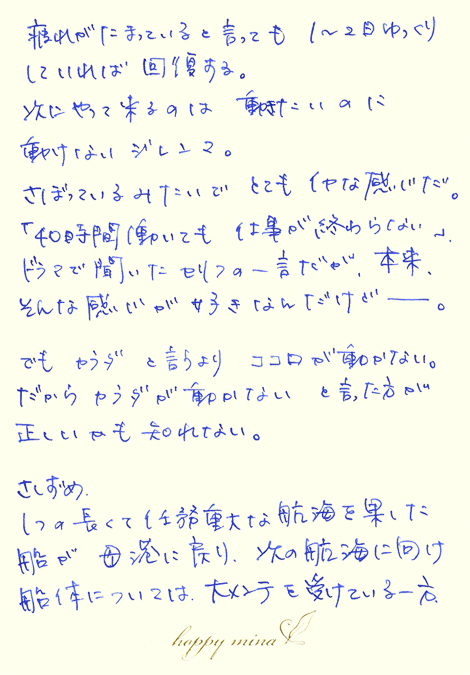 疲れがたまっていると言っても 1〜2日ゆっくり
していれば 回復する。
次にやって来るのは 動きたいのに
動けない ジレンマ。
さぼっているみたいで とても イヤな感じだ。
「40時間働いても 仕事が終わらない」、
ドラマで聞いたセリフの一言だが、本来、
そんな感じが好きなんだけど――。
でも カラダ と言うより ココロが動かない。
だから カラダが動かない と言った方が
正しいかも知れない。
さしずめ、
1つの長くて任務重大な航海を果した
船が 母港に戻り、次の航海に向け
船体については、大メンテを受けている一方、
happy mina